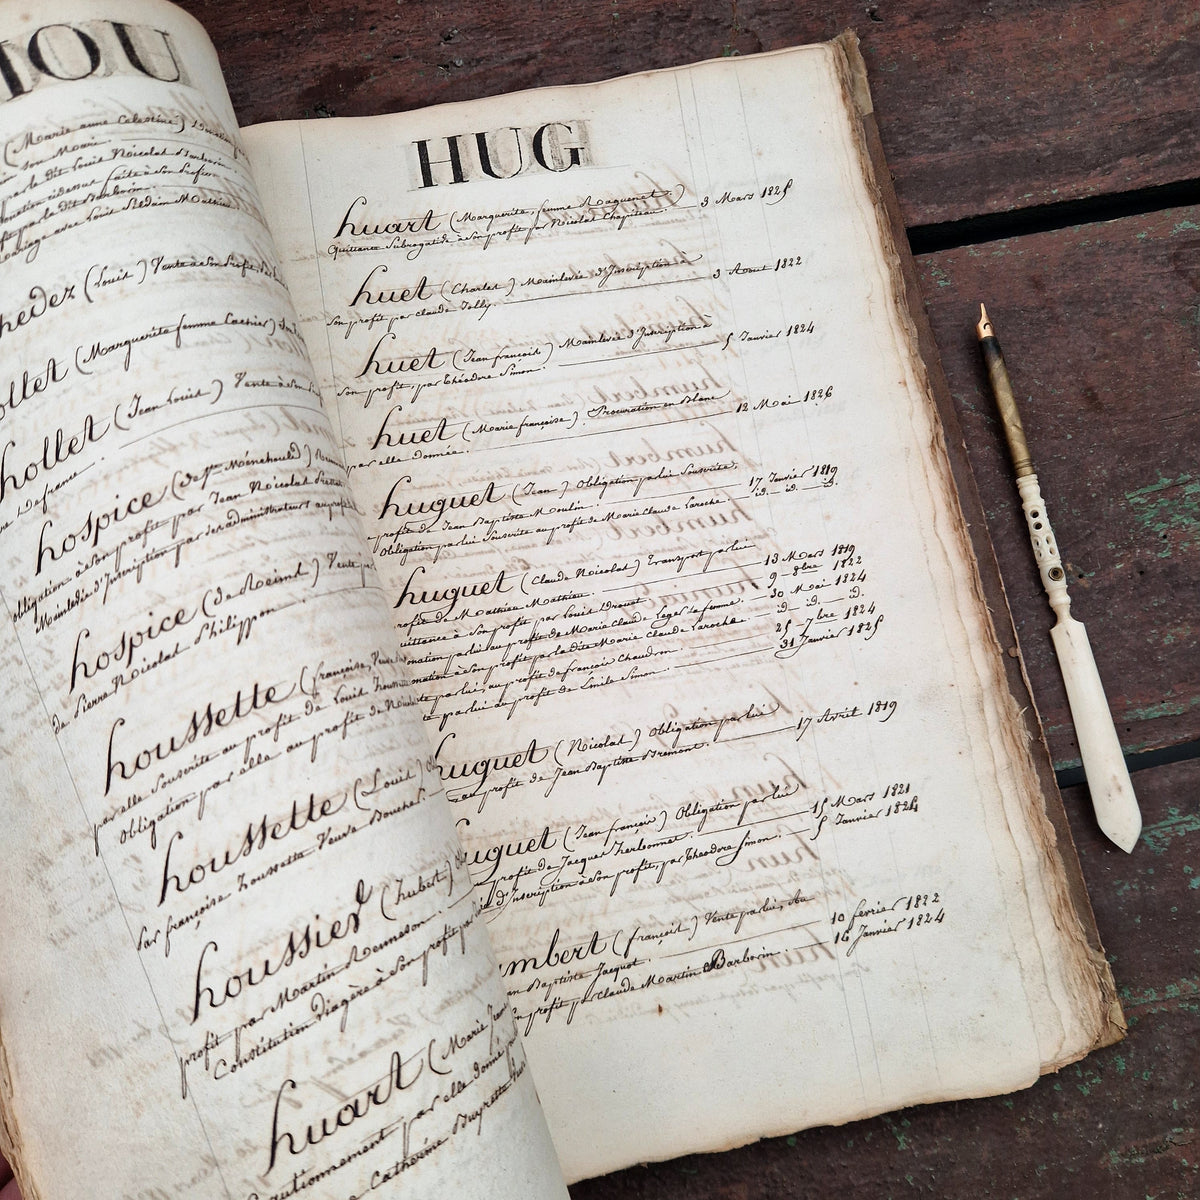 HOU
(Marie anne Celestine)
son Mari.
par le dit Louis Nicolas Barborin
donation cidessus faite à Son Profit
fit par le dit Barborin.
mariage avec Louis
(Louis) Vente à Son Profit
ollet (Marguerite femme
hollet (Jean Louis) Vente à Son
Defrance.
hospice (de Ste Ménéhould)
obligation à Son profit par Jean Nicolas
Mainlevée d'Inscription par Ses administrateurs au profit
hospice (de Reims) Vente par
de Pierre Nicolas Philippon
houssette (françoise Veuve
par elle Souscrite au profit de Louis
Obligation par elle au profit de
houssette (Louis)
Par françoise houssette Veuve Bouché.
houssier (hubert)
profit par Martin Rennesson.
Constitution Viagère à Son profit
huart (Marie
par elle donné
Catherine Buyrette
HUG
huart (Marguerite, femme Raquenet.) 3 Mars 1825
Quittance Subrogatoire à Son profit par Nicolas Chapiteau.
huet (Charles) Mainlevée d'Inscription à
Son profit par Claude Jolly. 3 Aout 1822
huet (Jean françois) Mainlevée d'Inscription à
Son profit, par théodore Simon. 5 Janvier 1824
huet (Marie françoise) Procuration en Blanc
par elle donnée. 12 Mai 1826
huguet (Jean) Obligation par lui Souscrite,
profit de Jean Baptiste Moulin. 17 Janvier 1819
Obligation par lui Souscrite au profit de Marie Claude Laroche. id. id. id.
huguet (Claude Nicolas) Transport par lui
profit de Mathieu Mathieu. 13 Mars 1819
uittance à Son profit par Louis Drouet 9 8bre 1822
nation par lui au profit de Marie Claude Leger Sa femme. 30 Mai 1824
nation à Son profit par la dite Marie Claude Laroche. id. id. id.
te par lui, au profit de françois Chaudron. 25 7bre 1824
te par lui au profit de Emile Simon. 31 Janvier 1825
huguet (Nicolas) Obligation par lui
au profit de Jean Baptiste Bremont. 17 Avril 1819
uguet (Jean françois) Obligation par lui
profit de Jacques herbonnet. 15 Mars 1821
d'Inscription à Son profit, par théodore Simon. 5 Janvier 1824
umbert (françois) Vente par lui, au
an Baptiste Jacquot. 10 fevrier 1822
n profit par Claude Martin Barborin. 16 Janvier 1824